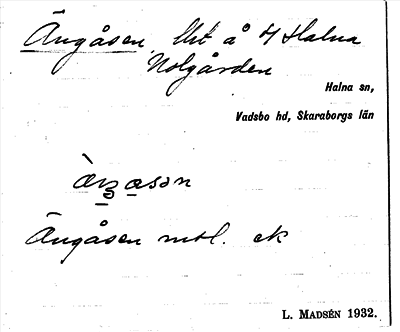 Ängåsen, Utt å 5/4 Halna
Nolgården
Halna sn,
Vadsbo hd, Skaraborgs län
Ängåsen mtl. ek
L. MADSÉN 1932.